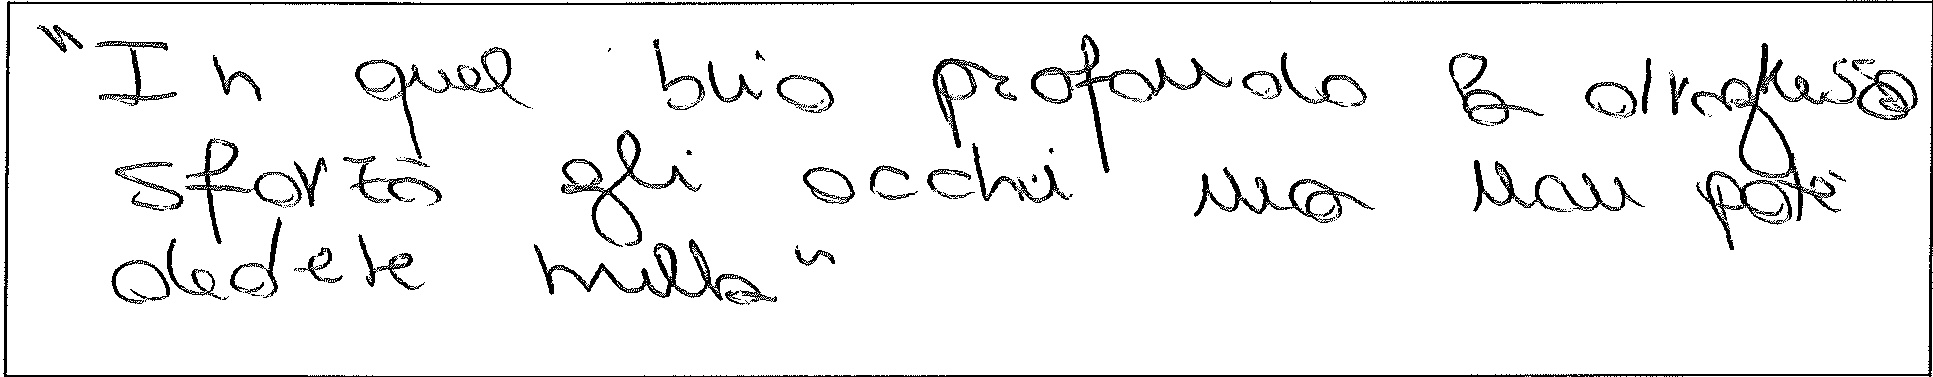 "In quel buio profondo la draghessa
sforzò gli occhi ma non poté
vedere nulla"